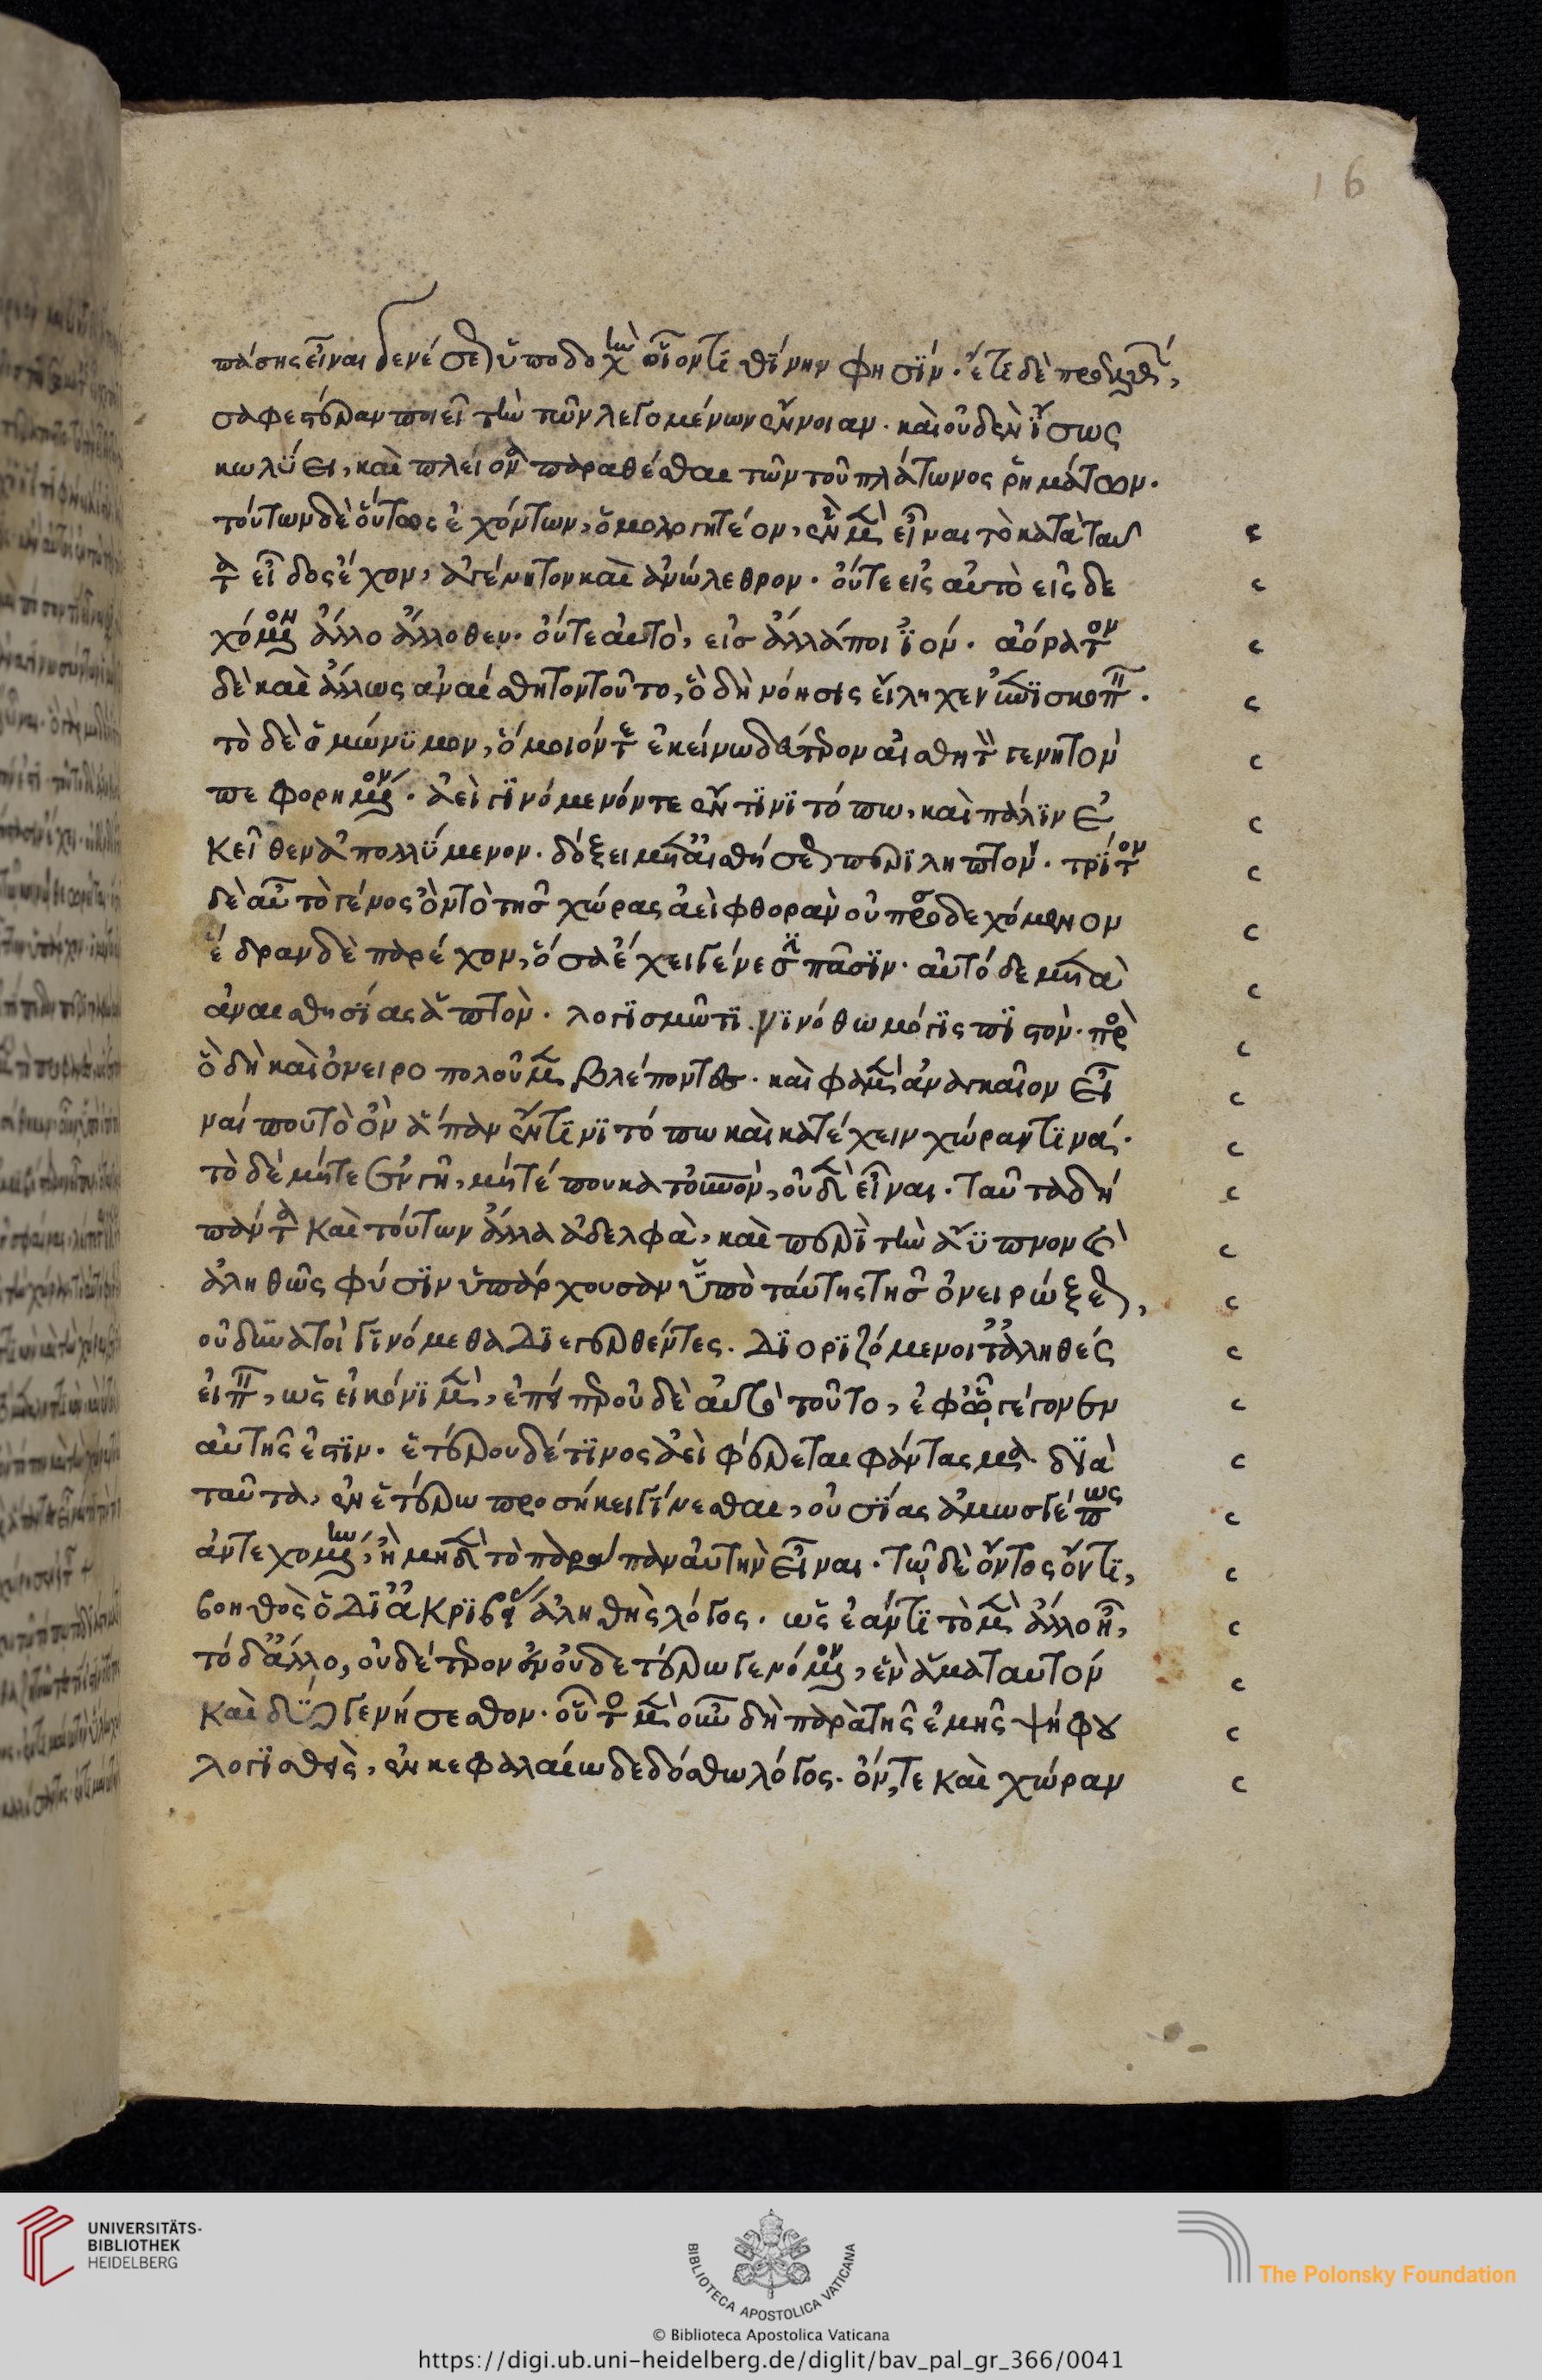 16
πάσης εἶναι γενέσεως ὑποδοχὴν οἷον τιθήνην φησΐν· ἔτι δὲ
σαφεστέραν ποιεῖ τὴν τῶν λεγομένων ἔννοιαν· καὶ οὐδὲν ἴσως
κωλύει, καὶ πλείονα παραθέσθαι τῶν τοῦ πλάτωνος ῥημάτων·
τούτων δὲ οὕτως ἐχόντων, ὁμολογητέον, ἓν μὲν εἶναι τὸ κατὰ ταυ
τὰ εἶδος ἔχον, ἀγένητον καὶ ἀνώλεθρον· οὔτε εἰς αὐτὸ εἰς δε
χόμενον ἄλλο ἄλλοθεν· οὔτε αὐτὸ, εἰσ ἄλλά ποι ϊόν· ἀόρατον
δὲ καὶ ἄλλως αναίσθητον τοῦτο, ὃ δὴ νόησις εἴληχεν ἐπισκοπεῖν·
τὸ δὲ ὁμώνυμον, ὅμοιόν τε ἐκείνω δεύτερον αἰσθητὸν γενητὸν
πεφορημένον· ἀεὶ γινόμενόν τε ἔν τϊνϊ τόπω, καὶ πάλϊν ἐ
κεῖθεν ἀπολλύμενον· δόξει μετ αἰσθήσεως περιληπτόν· τρίτον
δὲ αὖ τὸ γένος ὂν τὸ τῆσ χώρας ἀεὶ φθορὰν οὐ προσδεχόμενον
ἕδραν δὲ παρέχον, ὅσα ἔχει γένεσιν πᾶσϊν· αὐτό δε μετὰ
ἀναισθησίας ἁπτὸν· λογϊσμῶ τϊνϊ νόθω μόγϊς πϊστὸν· πρὸ
ὃ δὴ καὶ ὀνειροπολοῦμεν βλέποντες· καὶ φαμὲν ἀναγκαῖον εἶ
ναί που τὸ ὂν ἅπαν ἔν τινϊ τόπω καὶ κατέχειν χώραν τϊνά·
τὸ δὲ μήτε ἐν γῆ, μήτέ που κατ οὐρανόν, οὐδὲν εἶναι· ταῦτα δὴ
πάντα καὶ τούτων ἄλλα ἀδελφὰ, καὶ περὶ τὴν ἄϋπνον καὶ
ἀληθῶς φύσϊν ὑπάρχουσαν ὑπὸ ταύτης τῆσ ὀνειρώξεως,
οὐ δυνατοὶ γϊνόμεθα διεγερθέντες· διορϊζόμενοι τἀληθές
εἰπεῖν, ὡς εἰκόνϊ μὲν, ἐπείπερ οὐδὲ αὐτὸ τοῦτο, ἐφ ᾧ γέγονεν
αὐτῆς ἐστϊν· ἑτέρου δέ τϊνος ἀεὶ φέρεται φάντασμα· δϊὰ
ταῦτα, ἐν ἑτέρω προσήκει γίνεσθαι, οὐσϊας ἁμωσγέπως
ἀντεχομένην, ἢ μηδὲν τὸ παράπαν αὐτὴν εἶναι· τῶ δὲ ὄντος ὄντϊ,
βοηθὸς ὁ δϊ ἀκρϊβείας ἀληθὴς λόγος· ὡς ἕάν τϊ τὸ μὲν ἄλλο ἦ,
τό δ ἄλλο, οὐδέτερον ἐν οὐδετέρω γενόμενον, ἓν ἅμα ταυτὸν
καὶ δύο γενήσεσθον· οὗτος μὲν οὖν δὴ παρὰ τῆς ἐμῆς ψήφου
λογϊσθεὶς, ἐν κεφαλαίω δεδόσθω λόγος· ὄν, τε καὶ χώραν
UNIVERSITÄTS-
BIBLIOTHEK
HEIDELBERG
BIBLIOTECA APOSTOLICA VATICANA
The Polonsky Foundation
© Biblioteca Apostolica Vaticana
https://digi.ub.uni-heidelberg.de/diglit/bav_pal_gr_366/0041